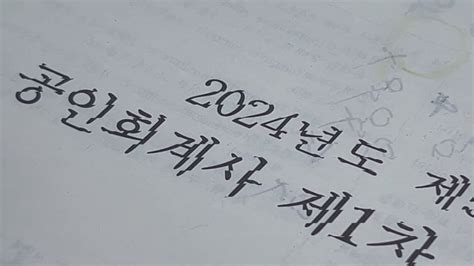 2024년도 제
공인회계사 제1차